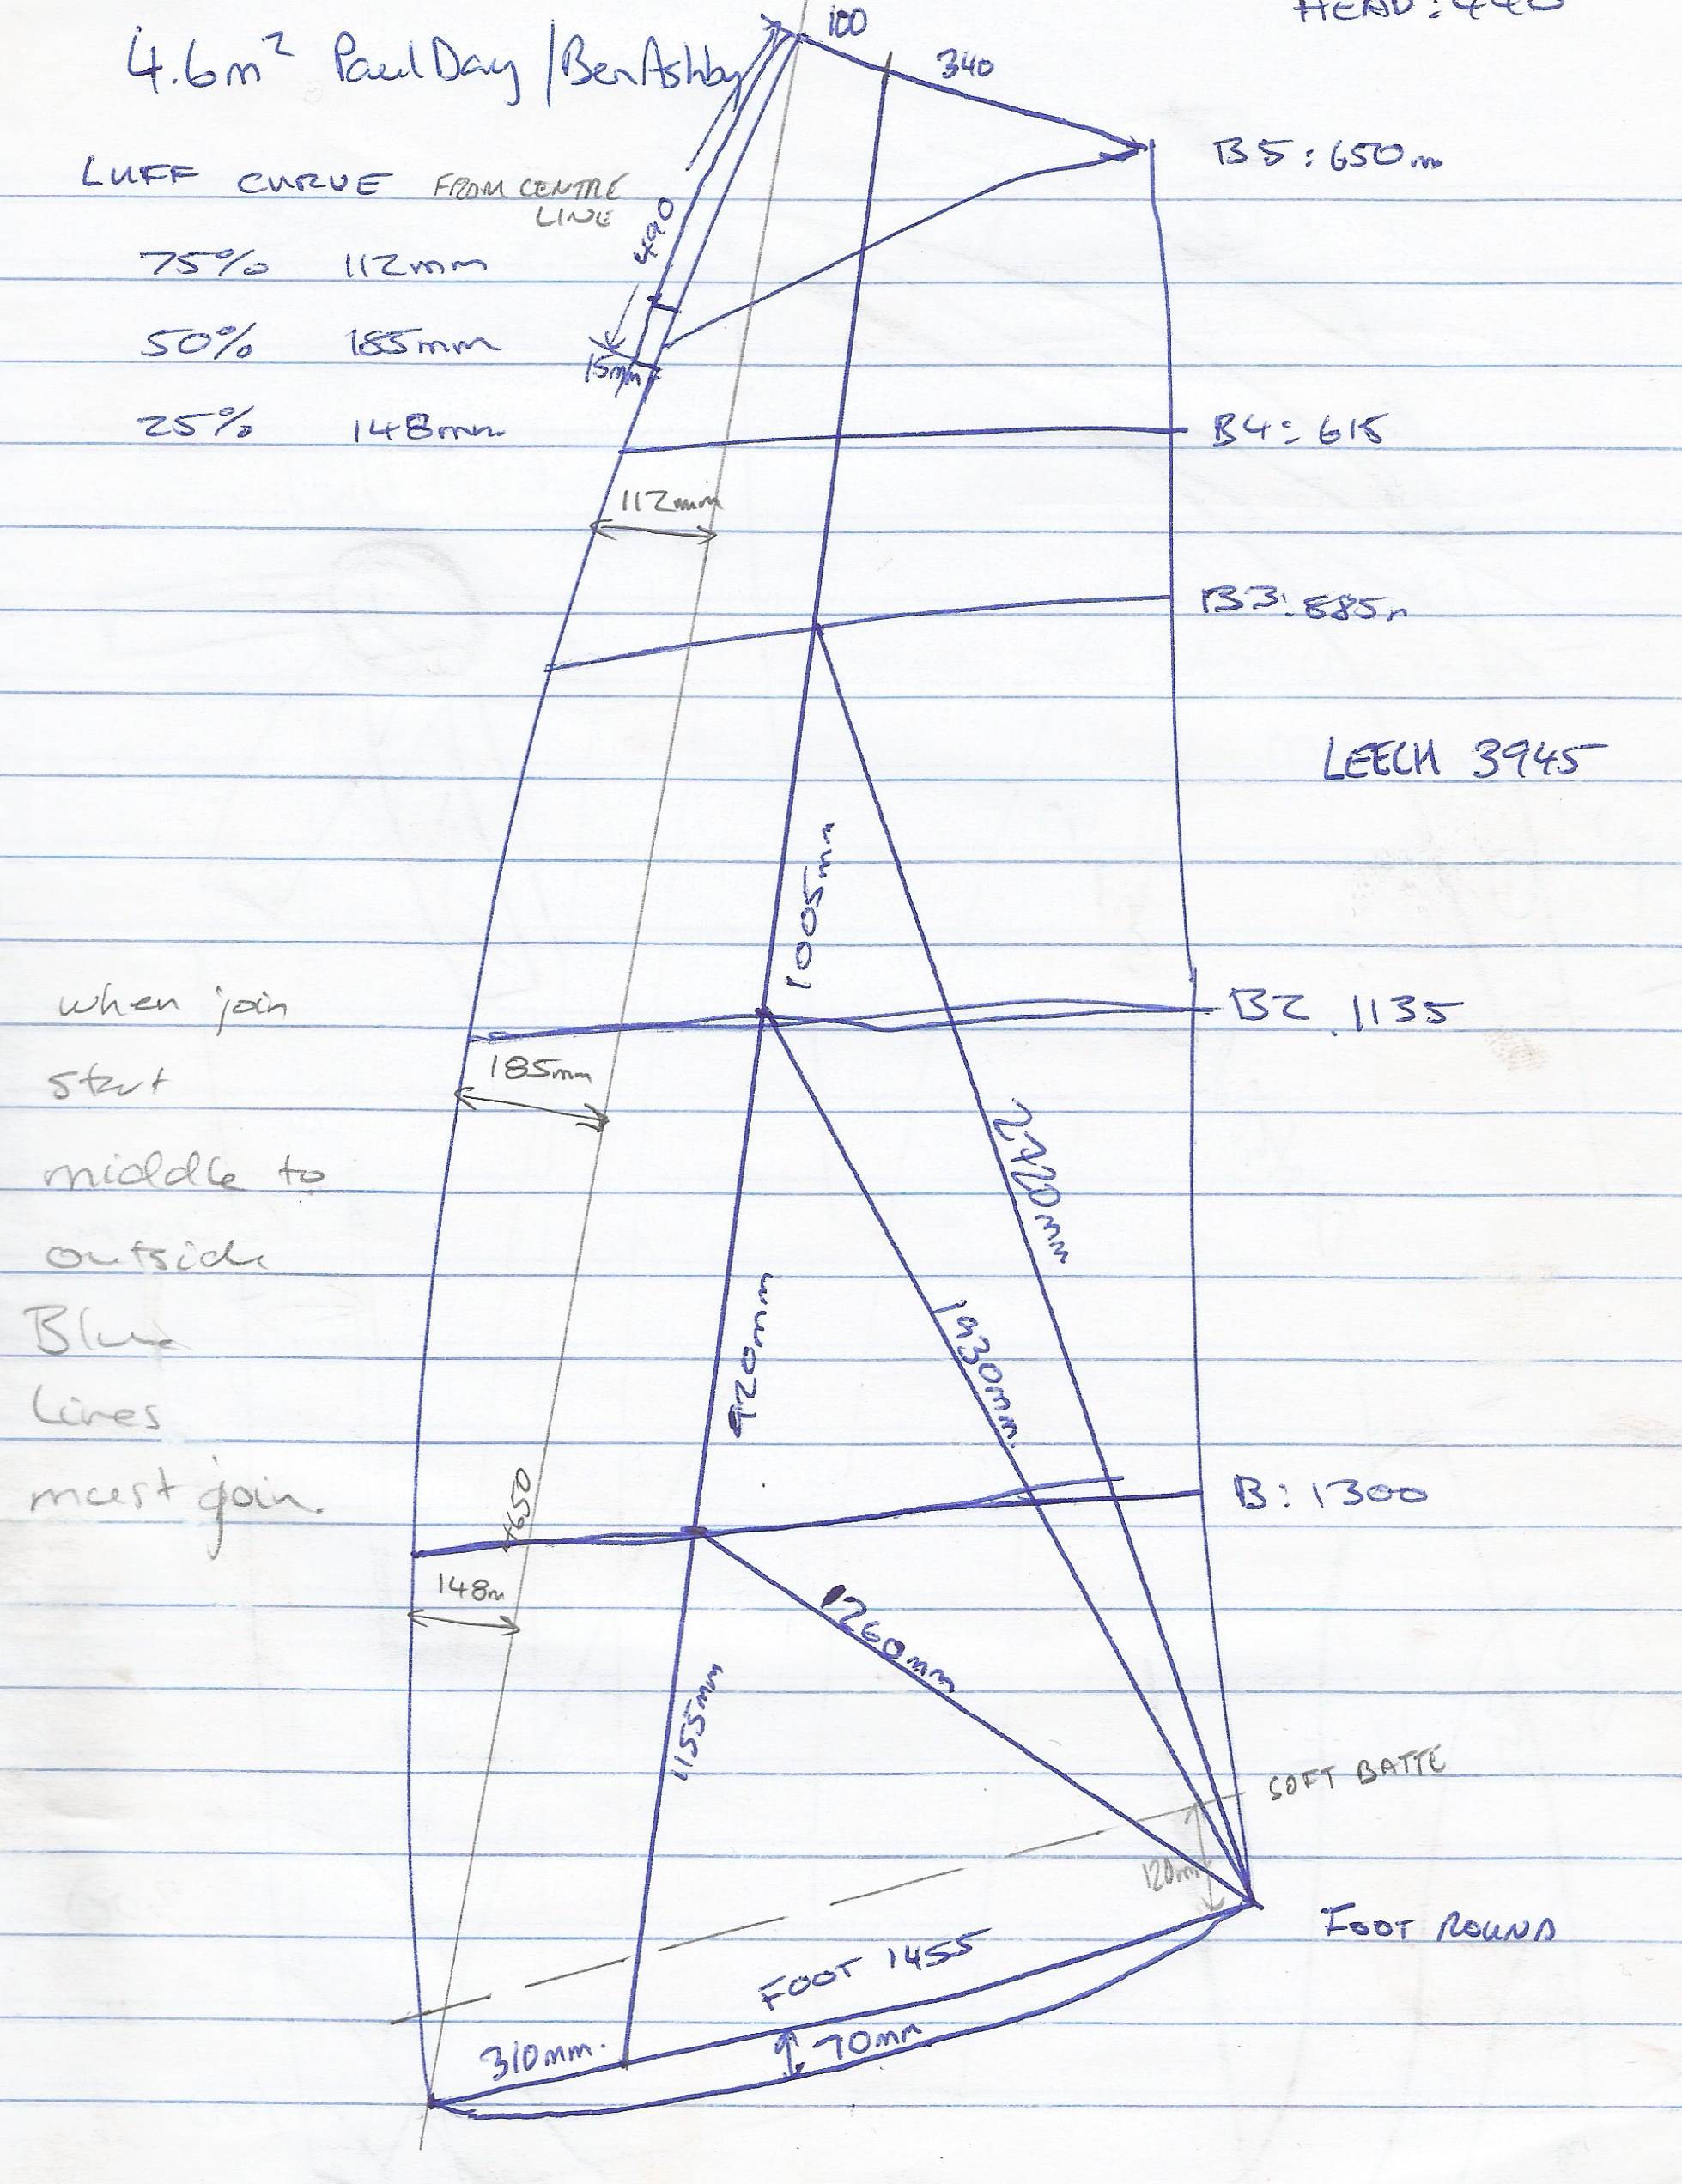 HEAD: 440
100
4.6m² Paul Day / Ben Ashby
340
B5: 650m
LUFF CURVE FROM CENTRE
LINE
490
75% 112mm
50% 185mm
15mm
25% 148mm
B4: 615
112mm
B3: 885m
LEECH 3945
1005mm
when join
B2 1135
185mm
start
2420mm
middle to
outside
920mm
1930mm.
Blue
lines
must join.
4650
B: 1300
148m
1260mm
1155mm
SOFT BATTE
120mm
FOOT ROUND
FOOT 1455
310mm.
70mm